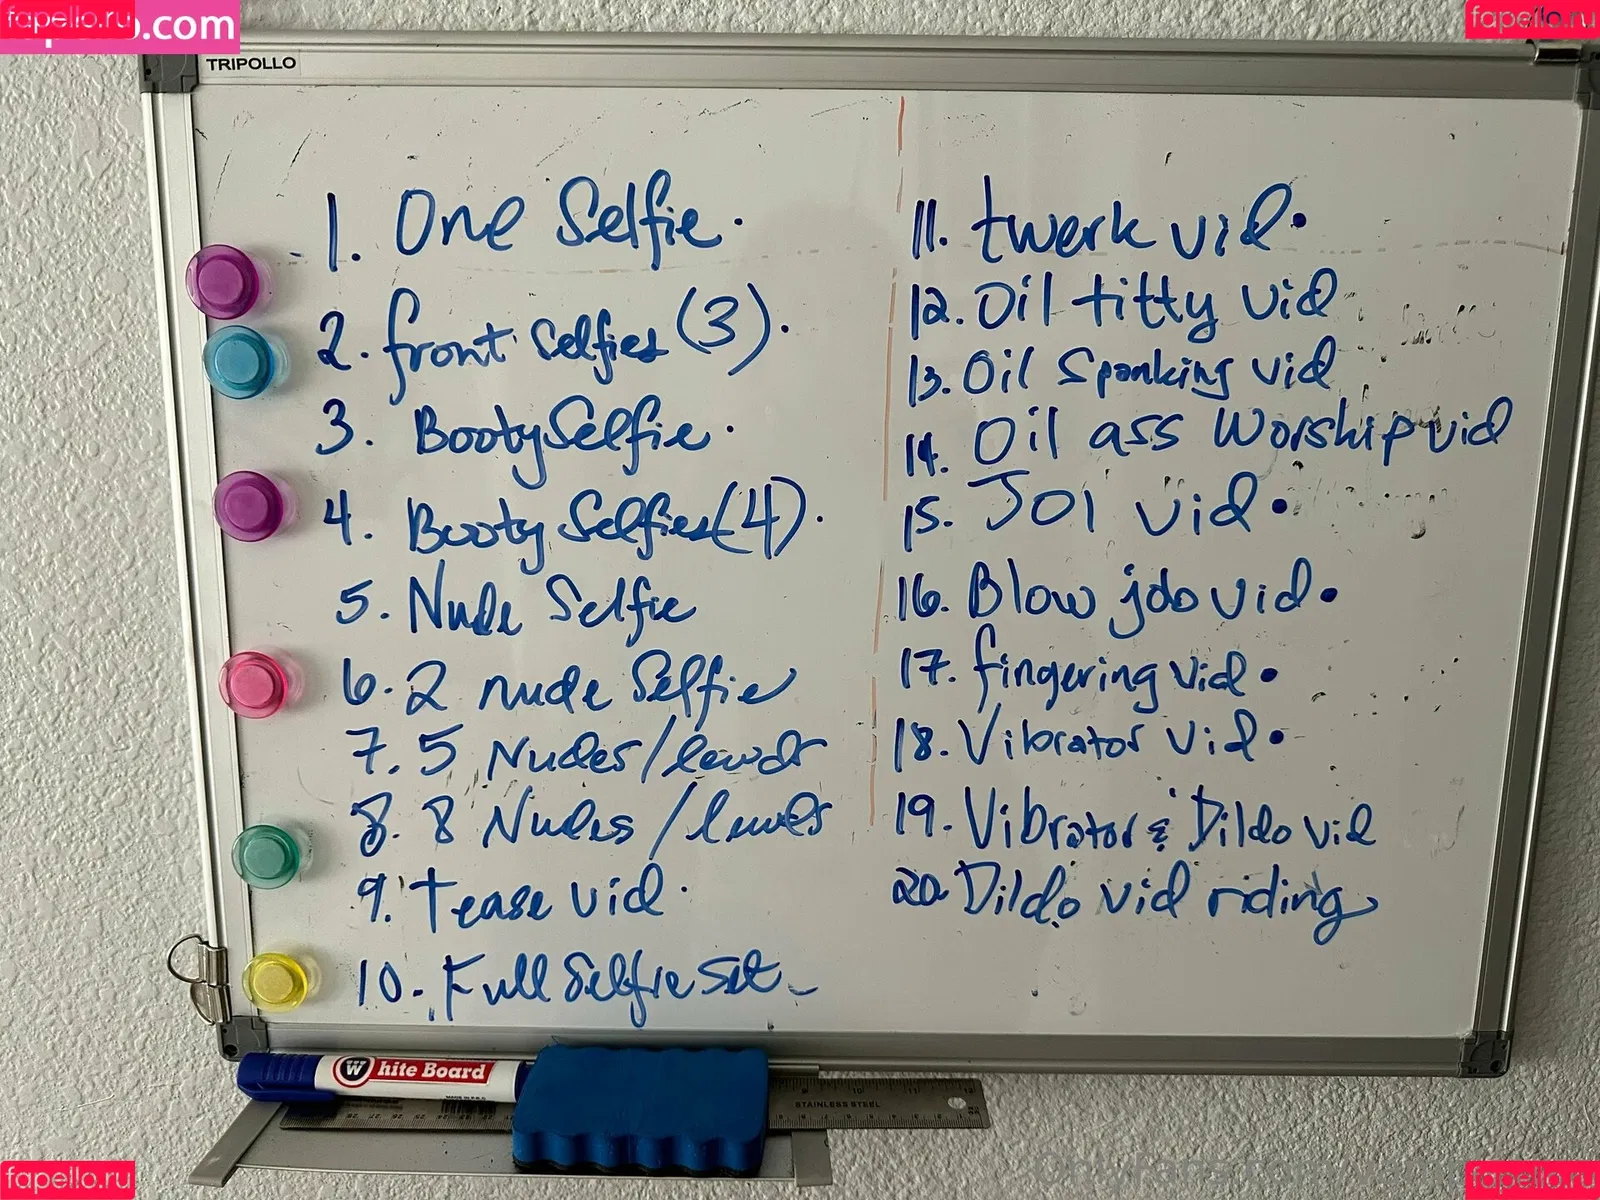 fapello.ru
fapello.ru
o.com
TRIPOLLO
1. One Selfie.
2. front selfies (3).
3. Booty Selfie.
4. Booty Selfies (4).
5. Nude Selfie
6. 2 nude Selfie
7. 5 Nudes/lewds
8. 8 Nudes/lewds
9. Tease vid.
10. Full Selfie Set
11. twerk vid.
12. Oil titty vid
13. Oil Spanking vid
14. Oil ass worship vid
15. JOI vid.
16. Blow job vid.
17. fingering vid.
18. Vibrator vid.
19. Vibrator & Dildo vid
20. Dildo vid riding
White Board
STAINLESS STEEL
fapello.ru
fapello.ru